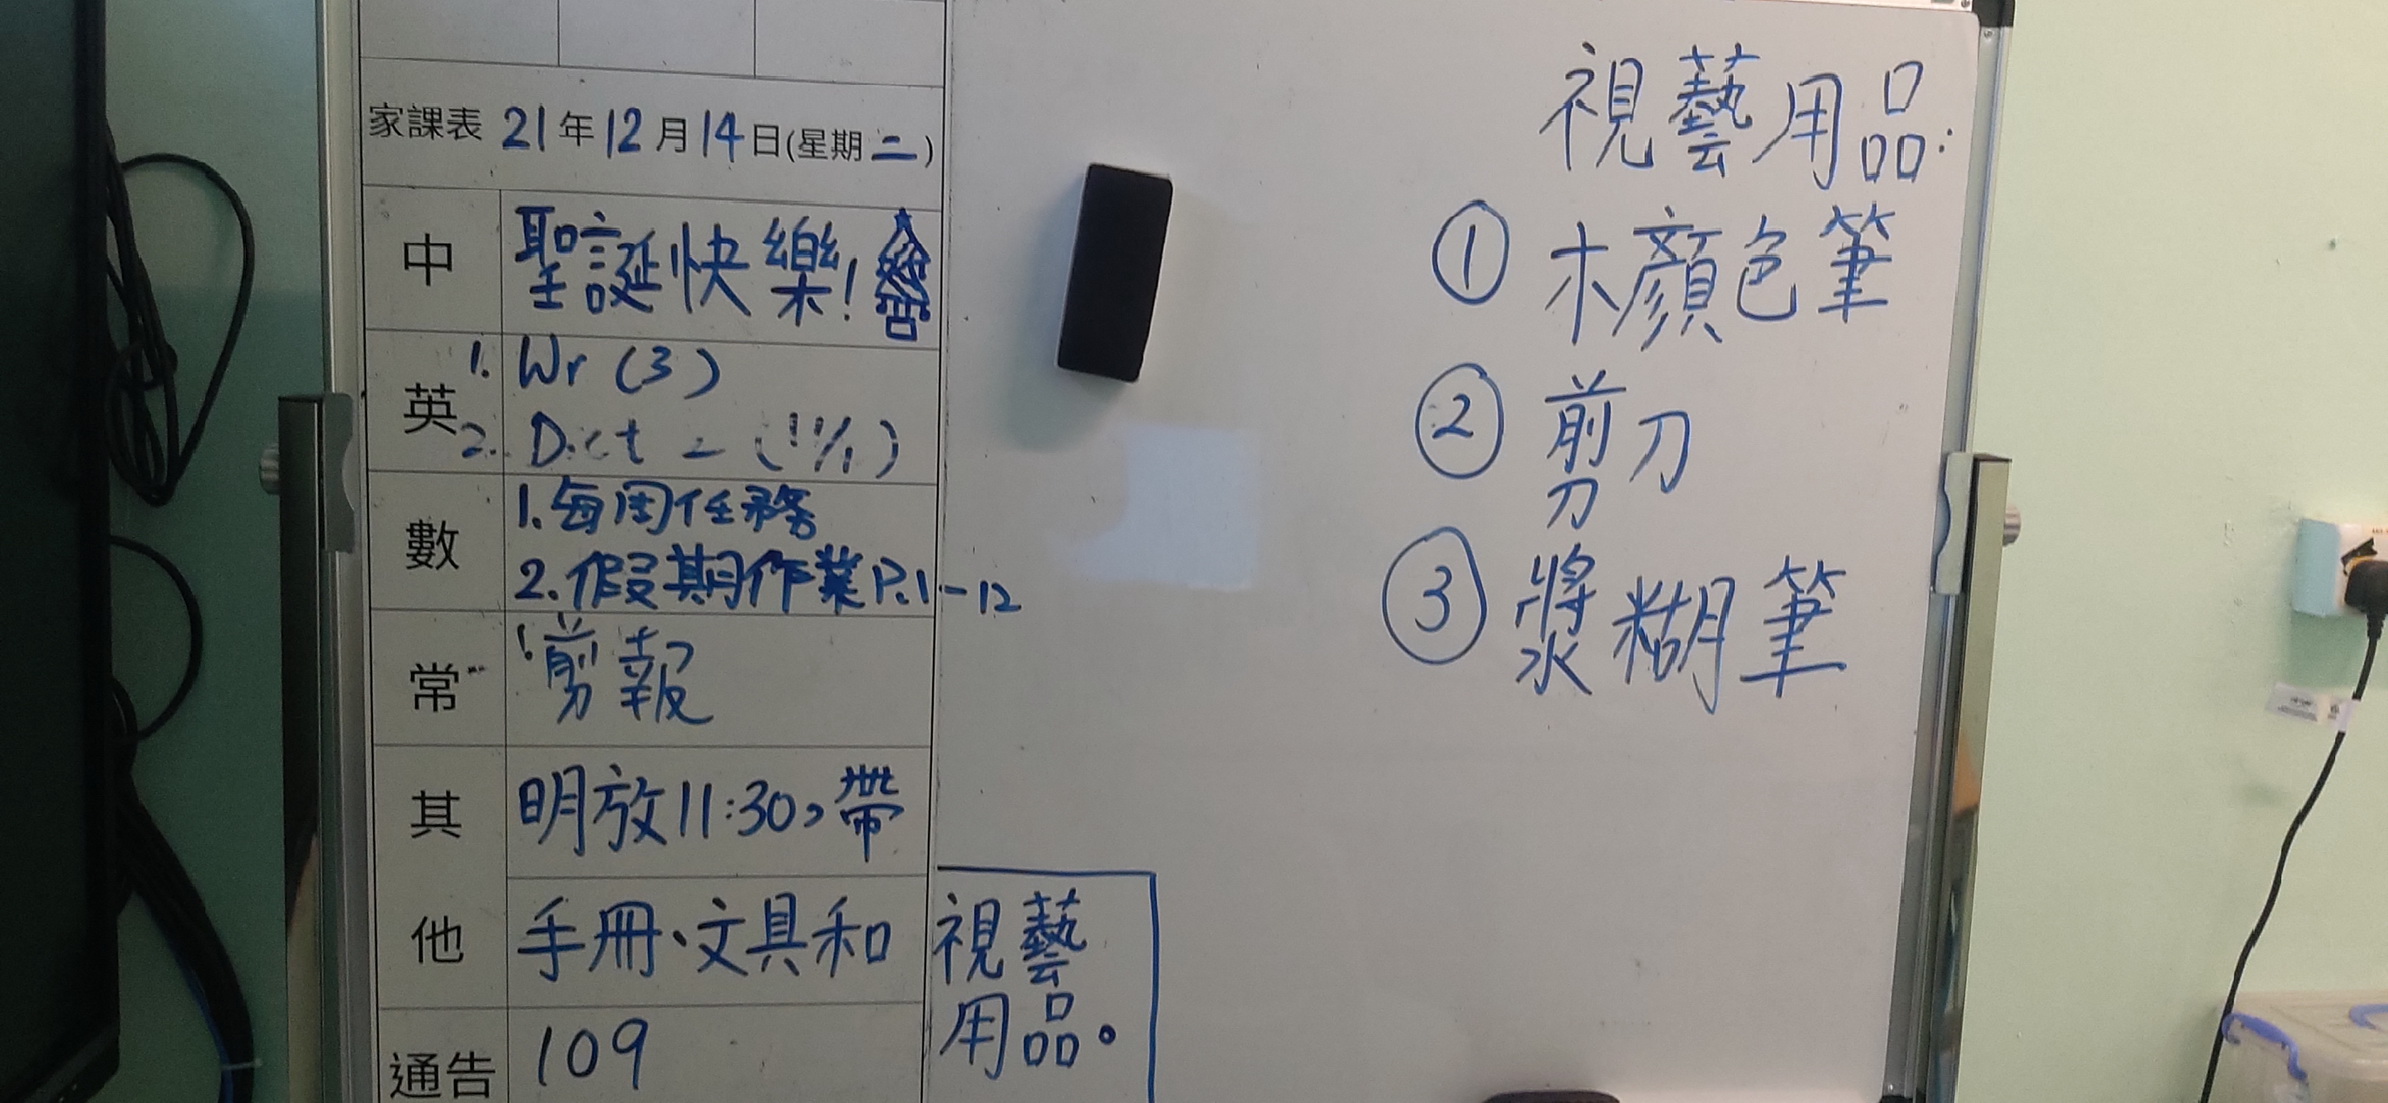 家課表 21年12月14日(星期二)
中 聖誕快樂!
英 1. Wr (3)
2. Dict = (11/1)
數 1.每周任務
2.假期作業P.1-12
常 1.剪報
其他 明放11:30，帶
手冊、文具和視藝
用品。
通告 109
視藝用品:
① 木顏色筆
② 剪刀
③ 漿糊筆